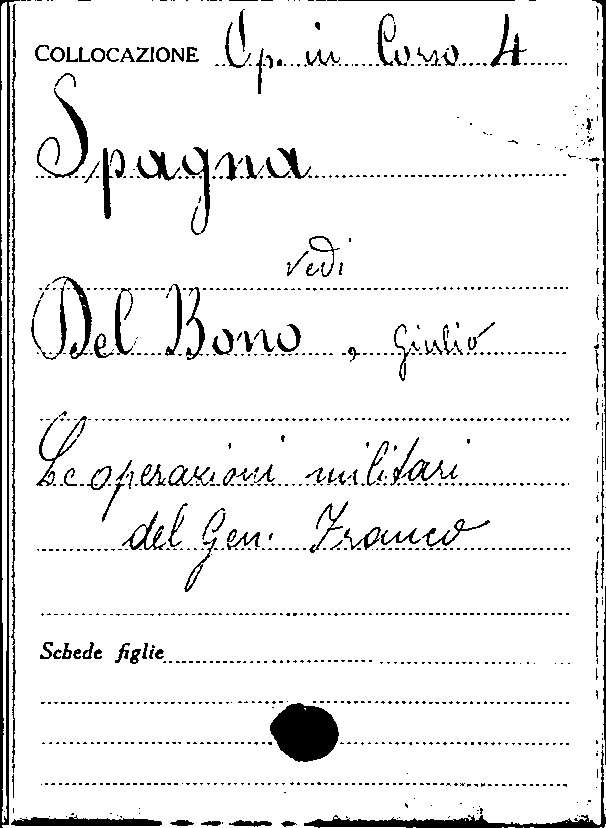 COLLOCAZIONE Op. in Corso 4
Spagna
vedi
Del Bono, Giulio
Le operazioni militari
del Gen. Franco
Schede figlie